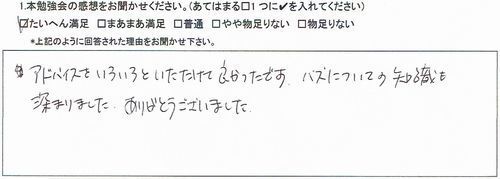 1.本勉強会の感想をお聞かせください。(あてはまる□1つに✔を入れてください)
☑たいへん満足 □まあまあ満足 □普通 □やや物足りない □物足りない
*上記のように回答された理由をお聞かせ下さい。
アドバイスをいろいろといただけて良かったです。バズについての知識も
深まりました。ありがとうございました。